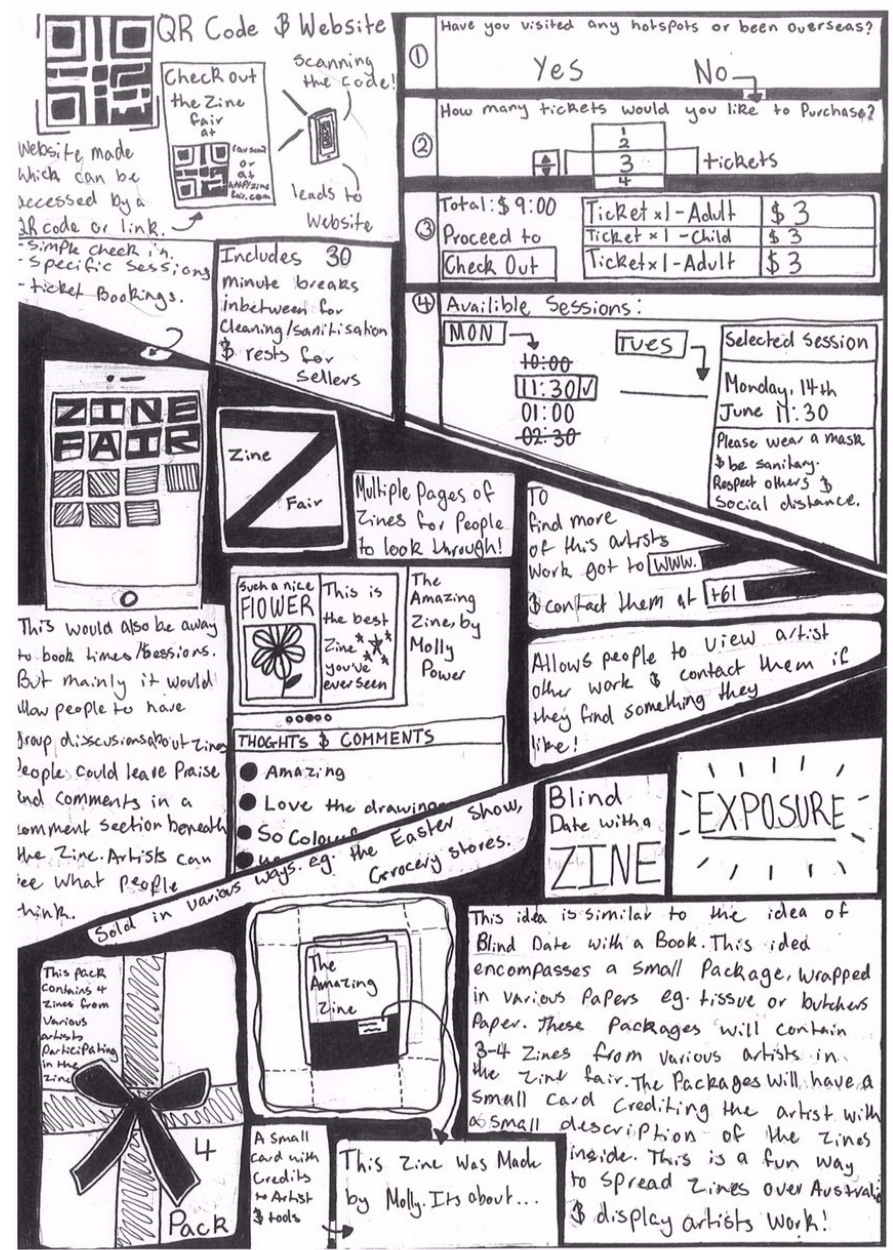 QR Code $ Website
Check out
the Zine
fair
at
or
at
Scanning
the code!
leads to
Website
Website made
which can be
accessed by a
QR code or link.
- Simple check in.
- Specific Sessions
- ticket Bookings.
Includes 30
minute breaks
inbetween for
Cleaning/sanitisation
$ rests for
Sellers
① Have you visited any hotspots or been overseas?
Yes No
② How many tickets would you like to Purchase?
1
2
3 tickets
4
③ Total: $ 9:00
Proceed to
Check Out
Ticket x 1 - Adult $ 3
Ticket x 1 - Child $ 3
Ticket x 1 - Adult $ 3
④ Availible Sessions:
MON
10:00
11:30 ✓
01:00
02:30
TUES
Selected Session
Monday, 14th
June 11:30
Please wear a mask
$ be sanitary.
Respect others $
Social distance.
ZINE
FAIR
Zine
Z
Fair
Multiple Pages of
Zines for People
to look through!
This would also be away
to book times/sessions.
But mainly it would
allow people to have
group disscusions about Zines
People could leave Praise
and comments in a
comment section beneath
the Zine. Artists can
see what people
think.
Such a nice
FLOWER
This is
the best
Zine
you've
ever seen
The
Amazing
Zine, by
Molly
Power
THOGHTS $ COMMENTS
Amazing
Love the drawing
So Colou
To
find more
of this artists
work got to WWW.
$ contact them at +61
Allows people to view artist
other work $ contact them if
they find something they
like!
Sold in various ways. eg. the Easter Show,
Grocery stores.
Blind
Date with a
ZINE
EXPOSURE
This Pack
contains 4
Zines from
Various
artists
Participating
in the
Zine
4
Pack
The
Amazing
Zine
A Small
card with
Credits
to Artist
$ tools
This Zine was Made
by Molly. Its about...
This idea is similar to the idea of
Blind Date with a Book. This idea
encompasses a small Package, wrapped
in various Papers eg. tissue or butchers
Paper. These Packages will contain
3-4 Zines from various artists in
the Zine fair. The Packages will have a
small card Crediting the artist with
a small description of the Zines
inside. This is a fun way
to spread Zines over Australia
$ display artists work!